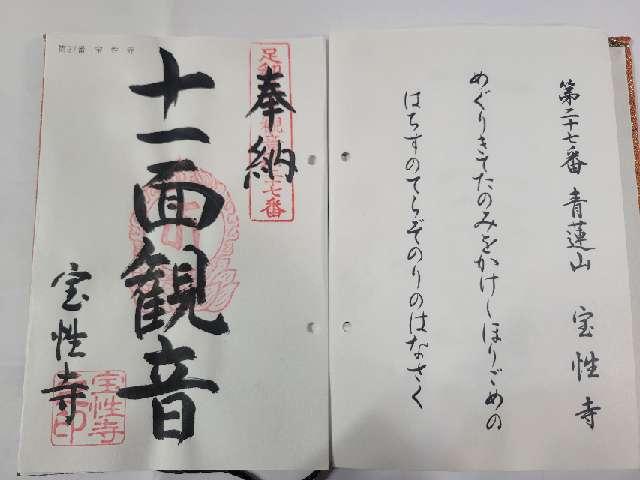 第二十七番 青蓮山 宝性寺
めぐりきてたのみをかけしほりごめの
はちすのてらぞのりのはなさく
奉納
十一面観音
宝性寺
第27番 宝性寺
宝性寺